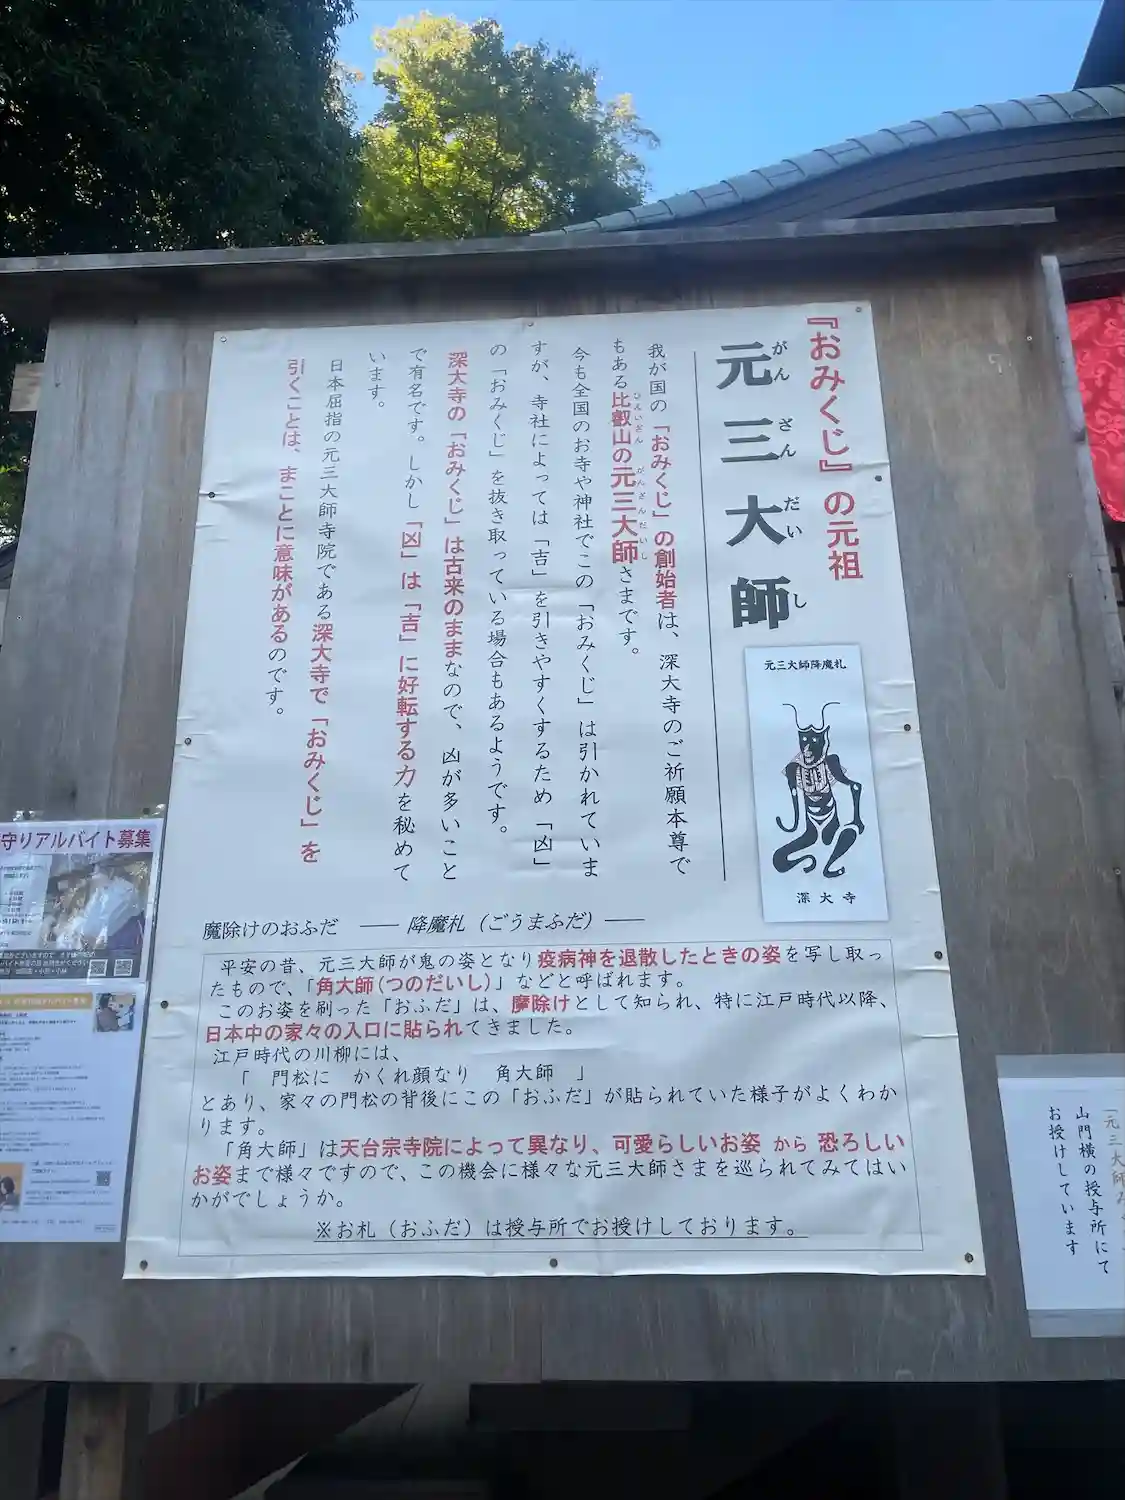 『おみくじ』の元祖
元三大師
がんざんだいし
元三大師降魔札
深大寺
我が国の「おみくじ」の創始者は、深大寺のご祈願本尊で
もある比叡山の元三大師さまです。
ひえいざん がんざんだいし
今も全国のお寺や神社でこの「おみくじ」は引かれていま
すが、寺社によっては「吉」を引きやすくするため「凶」
の「おみくじ」を抜き取っている場合もあるようです。
深大寺の「おみくじ」は古来のままなので、凶が多いこと
で有名です。しかし「凶」は「吉」に好転する力を秘めて
います。
日本屈指の元三大師寺院である深大寺で「おみくじ」を
引くことは、まことに意味があるのです。
魔除けのおふだ ―― 降魔札（ごうまふだ）――
平安の昔、元三大師が鬼の姿となり疫病神を退散したときの姿を写し取っ
たもので、「角大師(つのだいし)」などと呼ばれます。
このお姿を刷った「おふだ」は、摩除けとして知られ、特に江戸時代以降、
日本中の家々の入口に貼られてきました。
江戸時代の川柳には、
「 門松に かくれ顔なり 角大師 」
とあり、家々の門松の背後にこの「おふだ」が貼られていた様子がよくわか
ります。
「角大師」は天台宗寺院によって異なり、可愛らしいお姿 から 恐ろしい
お姿まで様々ですので、この機会に様々な元三大師さまを巡られてみてはい
かがでしょうか。
※お札（おふだ）は授与所でお授けしております。
守りアルバイト募集
「元三大師
山門横の授与所にて
お授けしています